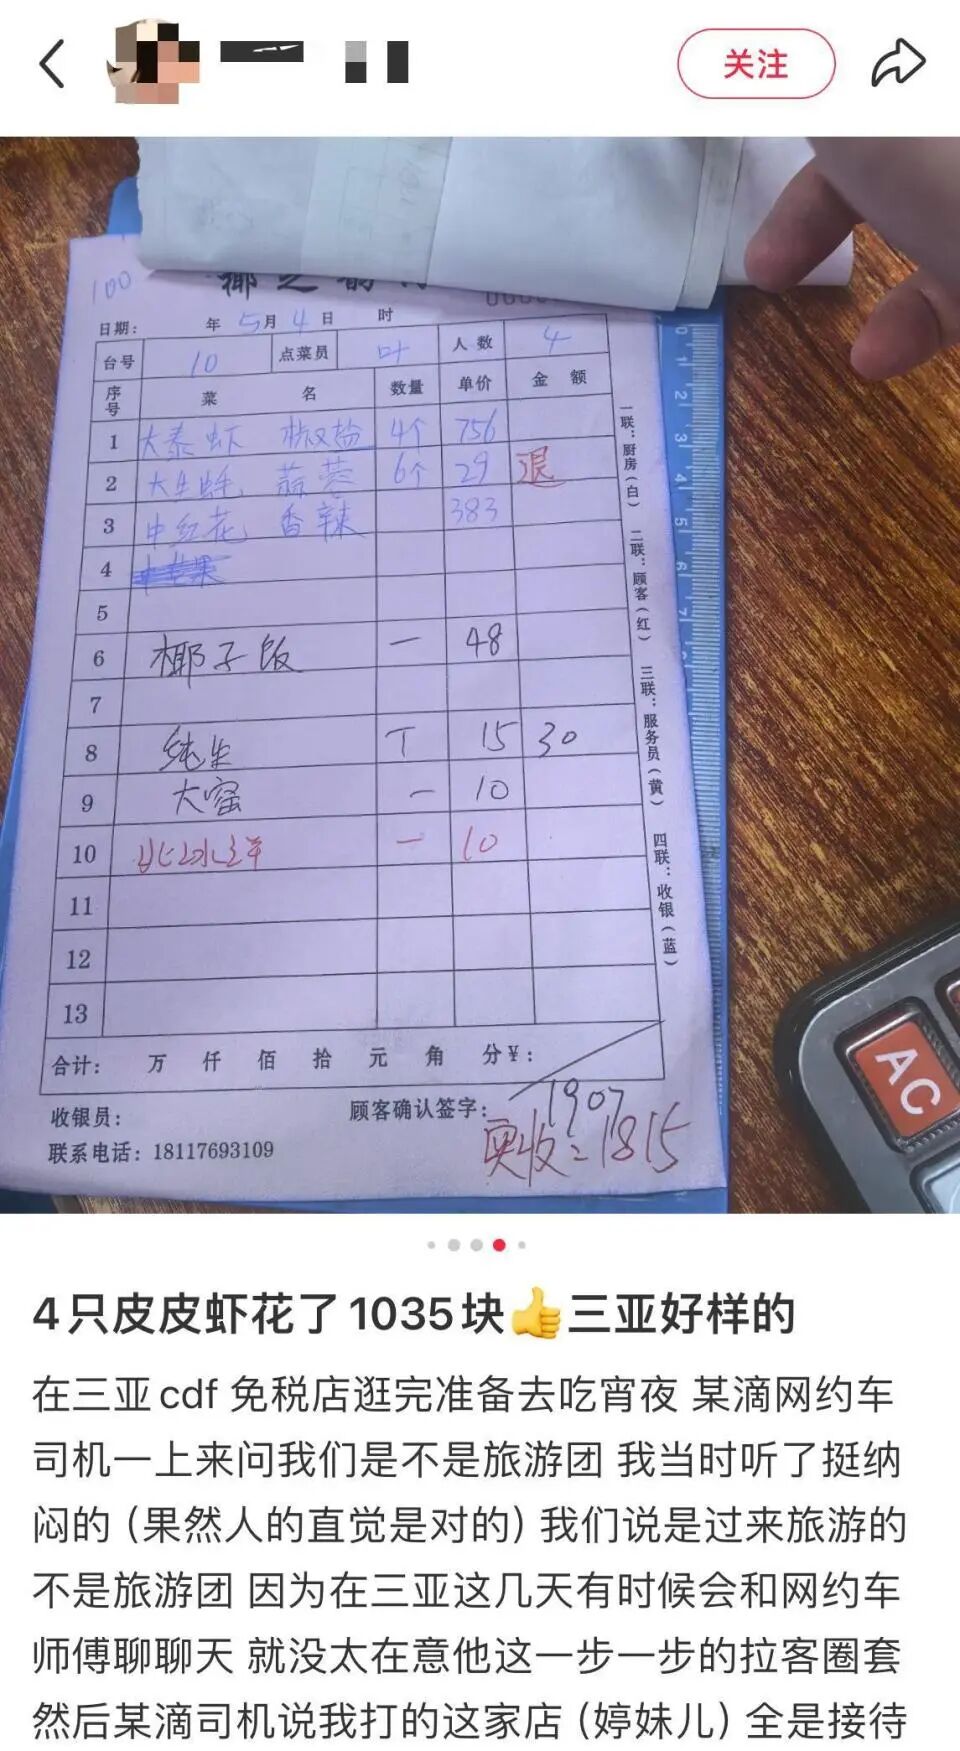 关注
100
椰之韵
日期： 年 5月 4日 时
台号 10 点菜员 叶 人数 4
序号 菜名 数量 单价 金额
1 大泰虾 椒盐 4个 756
2 大生蚝 蒜蓉 6个 29 退
3 中红花 香辣 383
4
5
6 椰子饭 一 48
7
8 纯生 T 15 30
9 大窑 一 10
10 北冰洋 一 10
11
12
13
合计： 万 仟 佰 拾 元 角 分¥：
收银员： 顾客确认签字：
1907
联系电话：18117693109
实收：1815
一联：厨房（白） 二联：顾客（红） 三联：服务员（黄） 四联：收银（蓝）
0 1 2 3 4 5 6 7
AC
4只皮皮虾花了1035块👍三亚好样的
在三亚cdf 免税店逛完准备去吃宵夜 某滴网约车
司机一上来问我们是不是旅游团 我当时听了挺纳
闷的（果然人的直觉是对的）我们说是过来旅游的
不是旅游团 因为在三亚这几天有时候会和网约车
师傅聊聊天 就没太在意他这一步一步的拉客圈套
然后某滴司机说我打的这家店（婷妹儿）全是接待